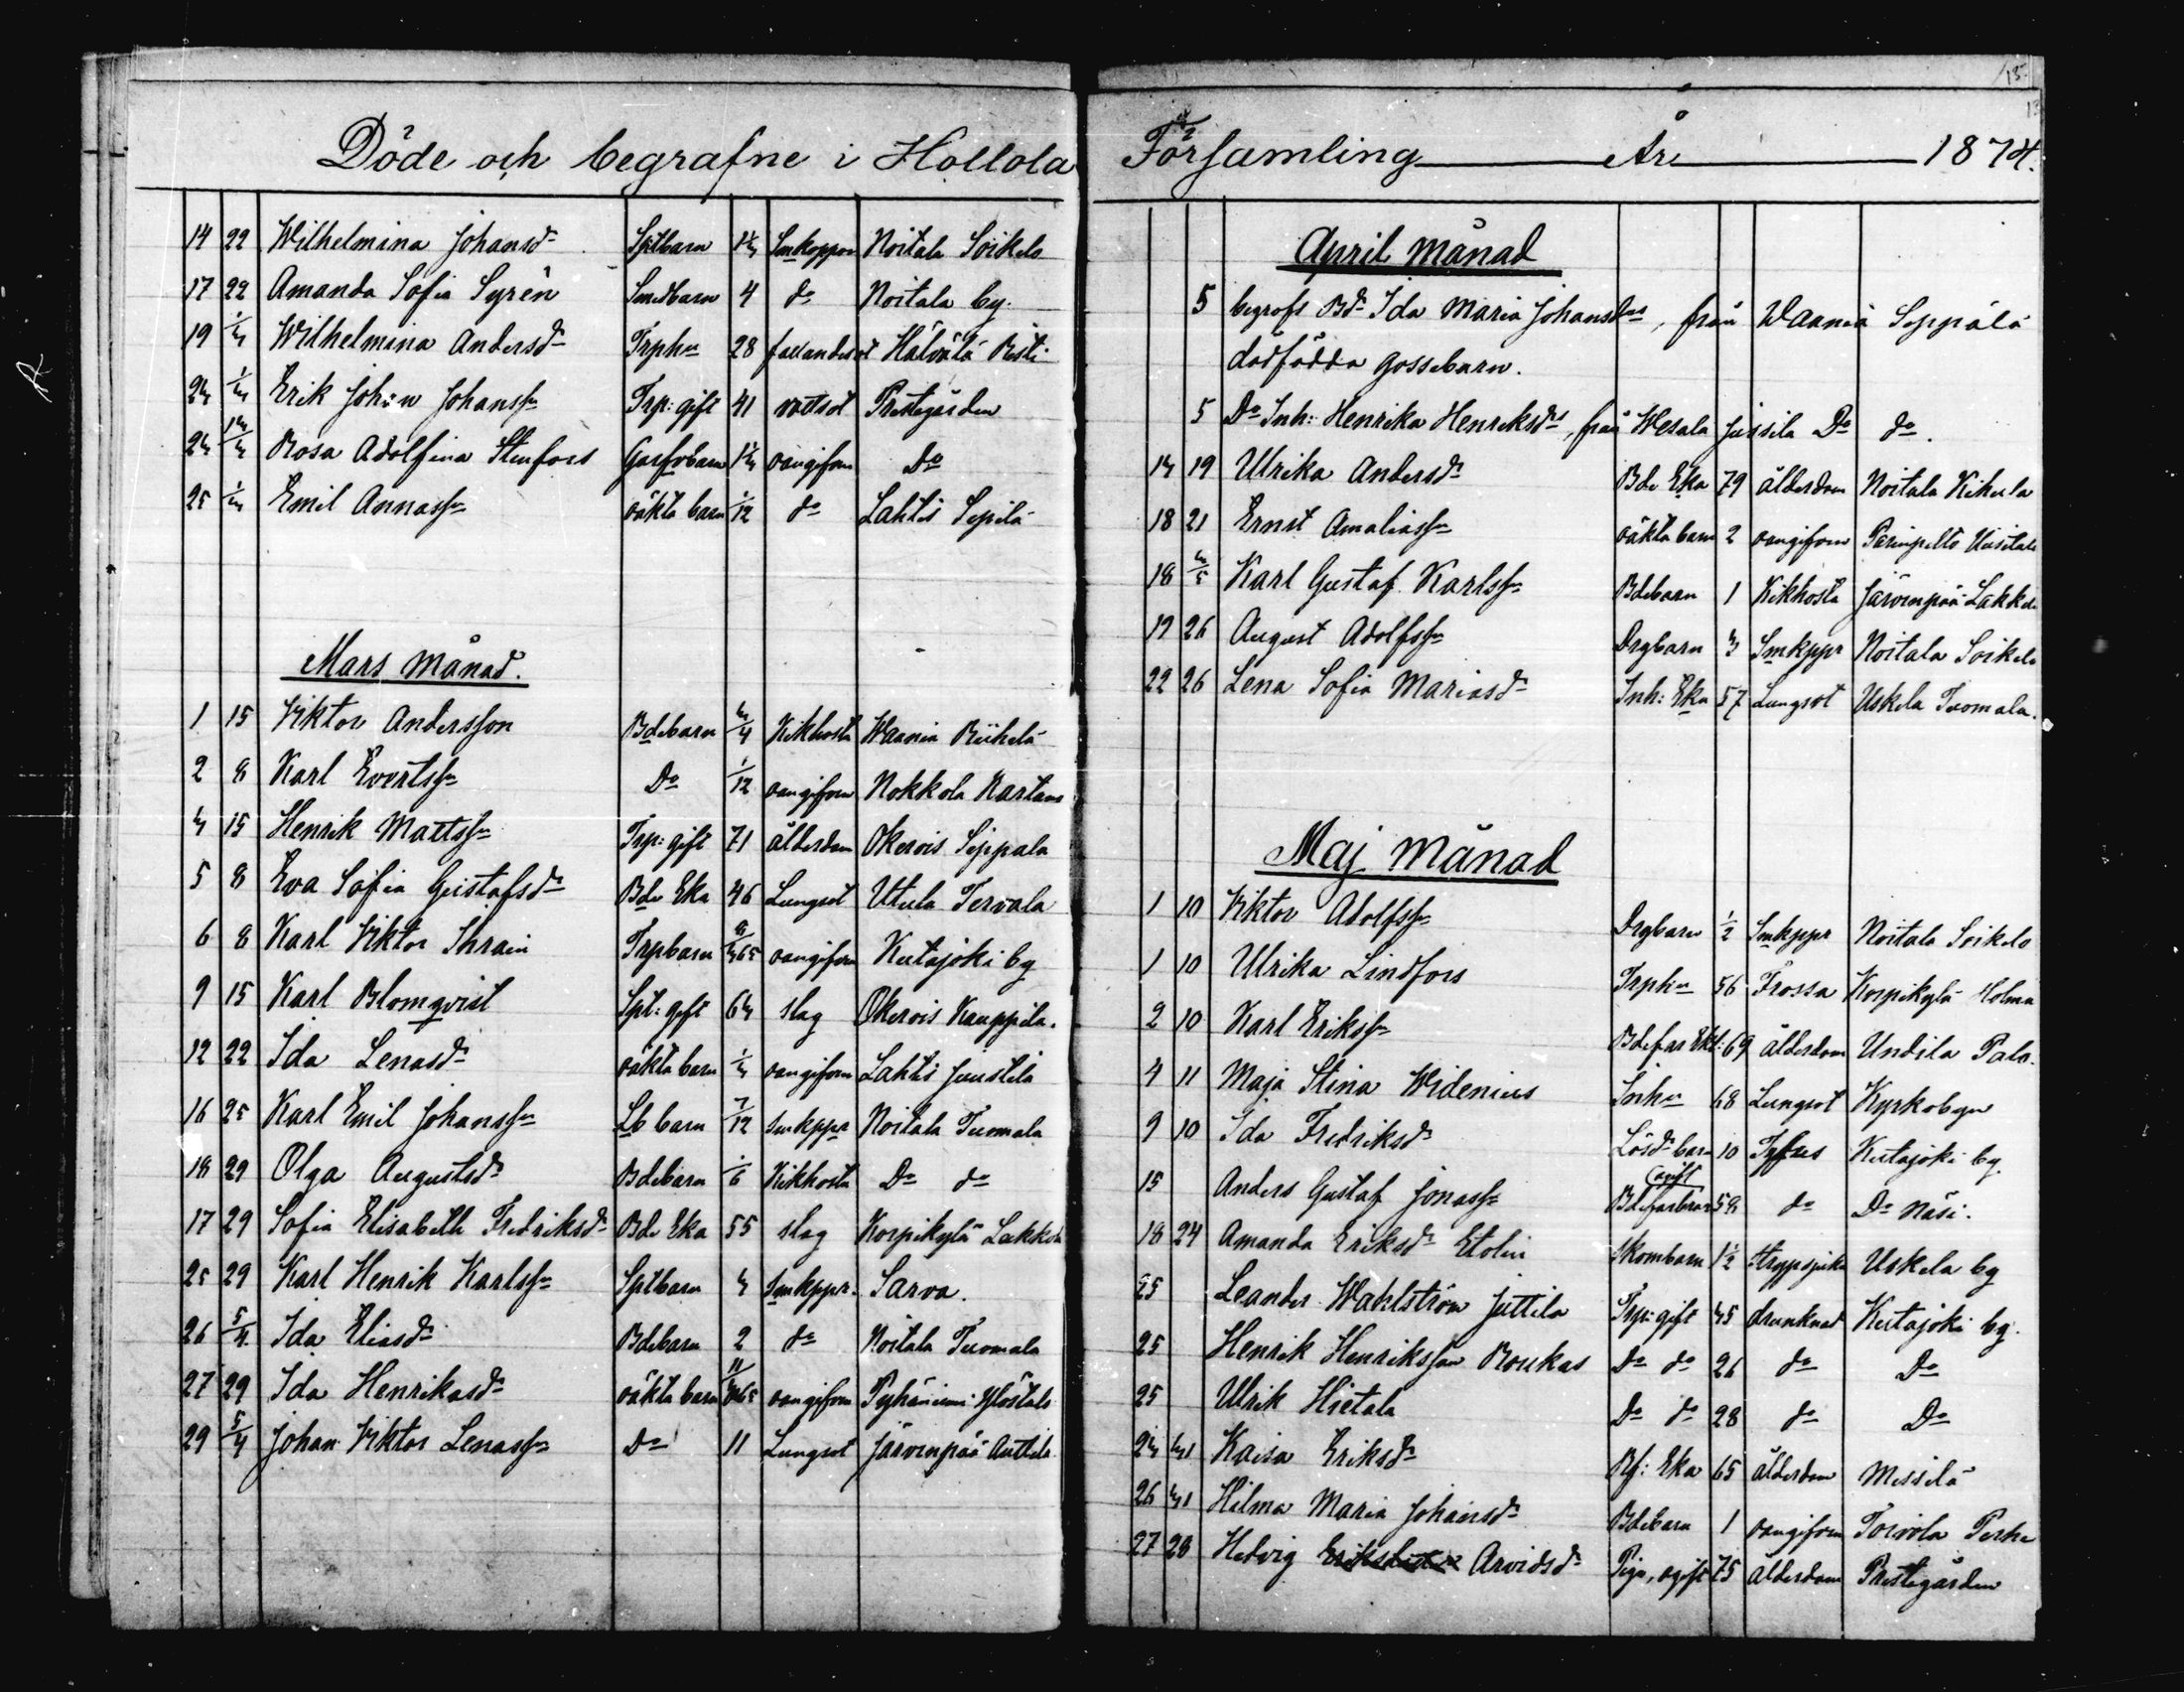 Döde och begrafne i Hollola
14 22 Wilhelmina Johansd:r Sptbarn 1 1/4 Smkoppor Noitala Soikelo
17 22 Amanda Sofia Syrén Smedbarn 4 d:o Noitala by.
19 1/4 Wilhelmina Andersd:r Trph:u 28 fallandesot Hälvälä Risti
24 1/4 Erik Johan Johanss:n Trp: gift 41 vattsot Prestegården
24 Rosa Adolfina Stenfors oangifven D:o
25 1/4 Emil Annass:n oäkta barn 1/12 d:o Lahtis Sepilä
Mars Månad.
1 15 Viktor Andersson Bdebarn 4/4 Kikhosta Waania Riihelä
2 8 Karl Evertss:n D:o 1/12 oangifven Nokkola
4 15 Henrik Mattss:n Trp: gift 71 ålderdom Okerois Seppala
5 8 Eva Sofia Gustafsd:r Bde Eka 46 Lungsot Utula Tervala
6 8 Karl Viktor Trpbarn oangifven Kutajoki by
9 15 Karl Blomqvist Spt: gift 64 slag Okerois Kauppila.
12 22 Ida Lenasd:r oäkta barn 1/4 oangifven Lahtis Juustila
16 25 Karl Emil Johanss:n Lb barn 7/12 smkppr Noitala Tuomala
18 29 Olga Augustsd:r Bdebarn 1/6 Kikhosta D:o d:o
17 29 Sofia Elisabeth Fredriksd:r Bde Eka 55 slag Korpikylä Lakkola
25 29 Karl Henrik Karlss:n Sptbarn 4 smkppr. Sarva.
26 5/4 Ida Eliasd:r Bdebarn 2 d:o Noitala Tuomala
27 29 Ida Henrikasd:r oäkta barn 11/365 oangifven Pyhäniemi Ylöstalo
29 5/4 Johan Viktor Lenass:n D:o 11 Lungsot Järvenpää Anttila
15.
13
Församling År 1874.
April Månad
5 begrofs Bd:r Ida Maria Johansd:rs, från Waania Seppälä
dödfödda gossebarn.
5 D:o Inh: Henrika Henriksd:rs, från Wesala Jussila D:o d:o.
14 19 Ulrika Andersd:r Bde Eka 79 ålderdom Noitala Kikula
18 21 Ernst Amaliass:n oäkta barn 2 oangifven Parinpelto Uusitalo
18 4/5 Karl Gustaf Karlss:n Bdebarn 1 Kikhosta Järvenpää Lakkola
19 26 August Adolfss:n Drgbarn 4 Smkppr Noitala Soikelo
22 26 Lena Sofia Mariasd:r Inh: Eka 57 Lungsot Uskela Tuomala.
Maj Månad
1 10 Viktor Adolfss:n Drgbarn 1/2 Smkppr Noitala Soikelo
1 10 Ulrika Lindfors Trph:u 56 Frossa Korpikylä Holma
2 10 Karl Erikss:n Bdefar Ekl: 69 ålderdom Undila Palo.
4 11 Maja Stina Widenius Inh:u 68 Lungsot Kyrkobyn
9 10 Ida Fredriksd:r Lösd:r barn 10 Tyfus Kutajoki by.
gift
15 Anders Gustaf Jonass:n Bdefarbror 58 d:o D:o Näsi.
18 24 Amanda Eriksd:r Etolin Skombarn 1 1/2 Strypsjuka Uskela by
25 Leander Wahlström Juttila Trp: gift 45 drunknad Kutajoki by.
25 Henrik Henriksson Roukas D:o d:o 26 d:o D:o
25 Ulrik Hietala D:o d:o 28 d:o D:o
24 Kaisa Eriksd:r Bf: Eka 65 ålderdom Messilä
26 Hilma Maria Johansd:r Bdebarn 1 oangifven Toivola Perhe
27 28 Hedvig Arvidsd:r Piga, ogift 75 ålderdom Prestegården